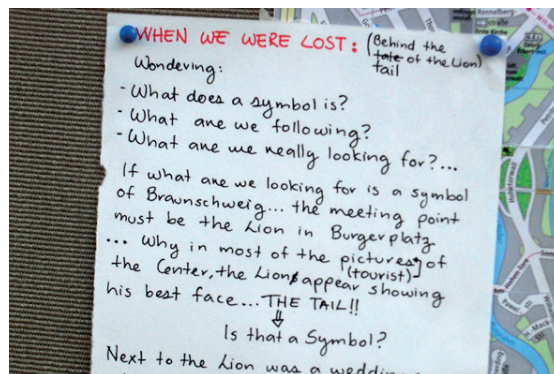 WHEN WE WERE LOST: (Behind the
tale of the Lion)
tail
Wondering:
- What does a symbol is?
- What are we following?
- What are we really looking for?...
If what are we looking for is a symbol
of Braunschweig... the meeting point
must be the Lion in Burgerplatz
... Why in most of the pictures of
(tourist)
the Center, the Lion appear showing
his best face... THE TAIL!!
Is that a Symbol?
Next to the Lion was a wedding
Rennelberg
straße